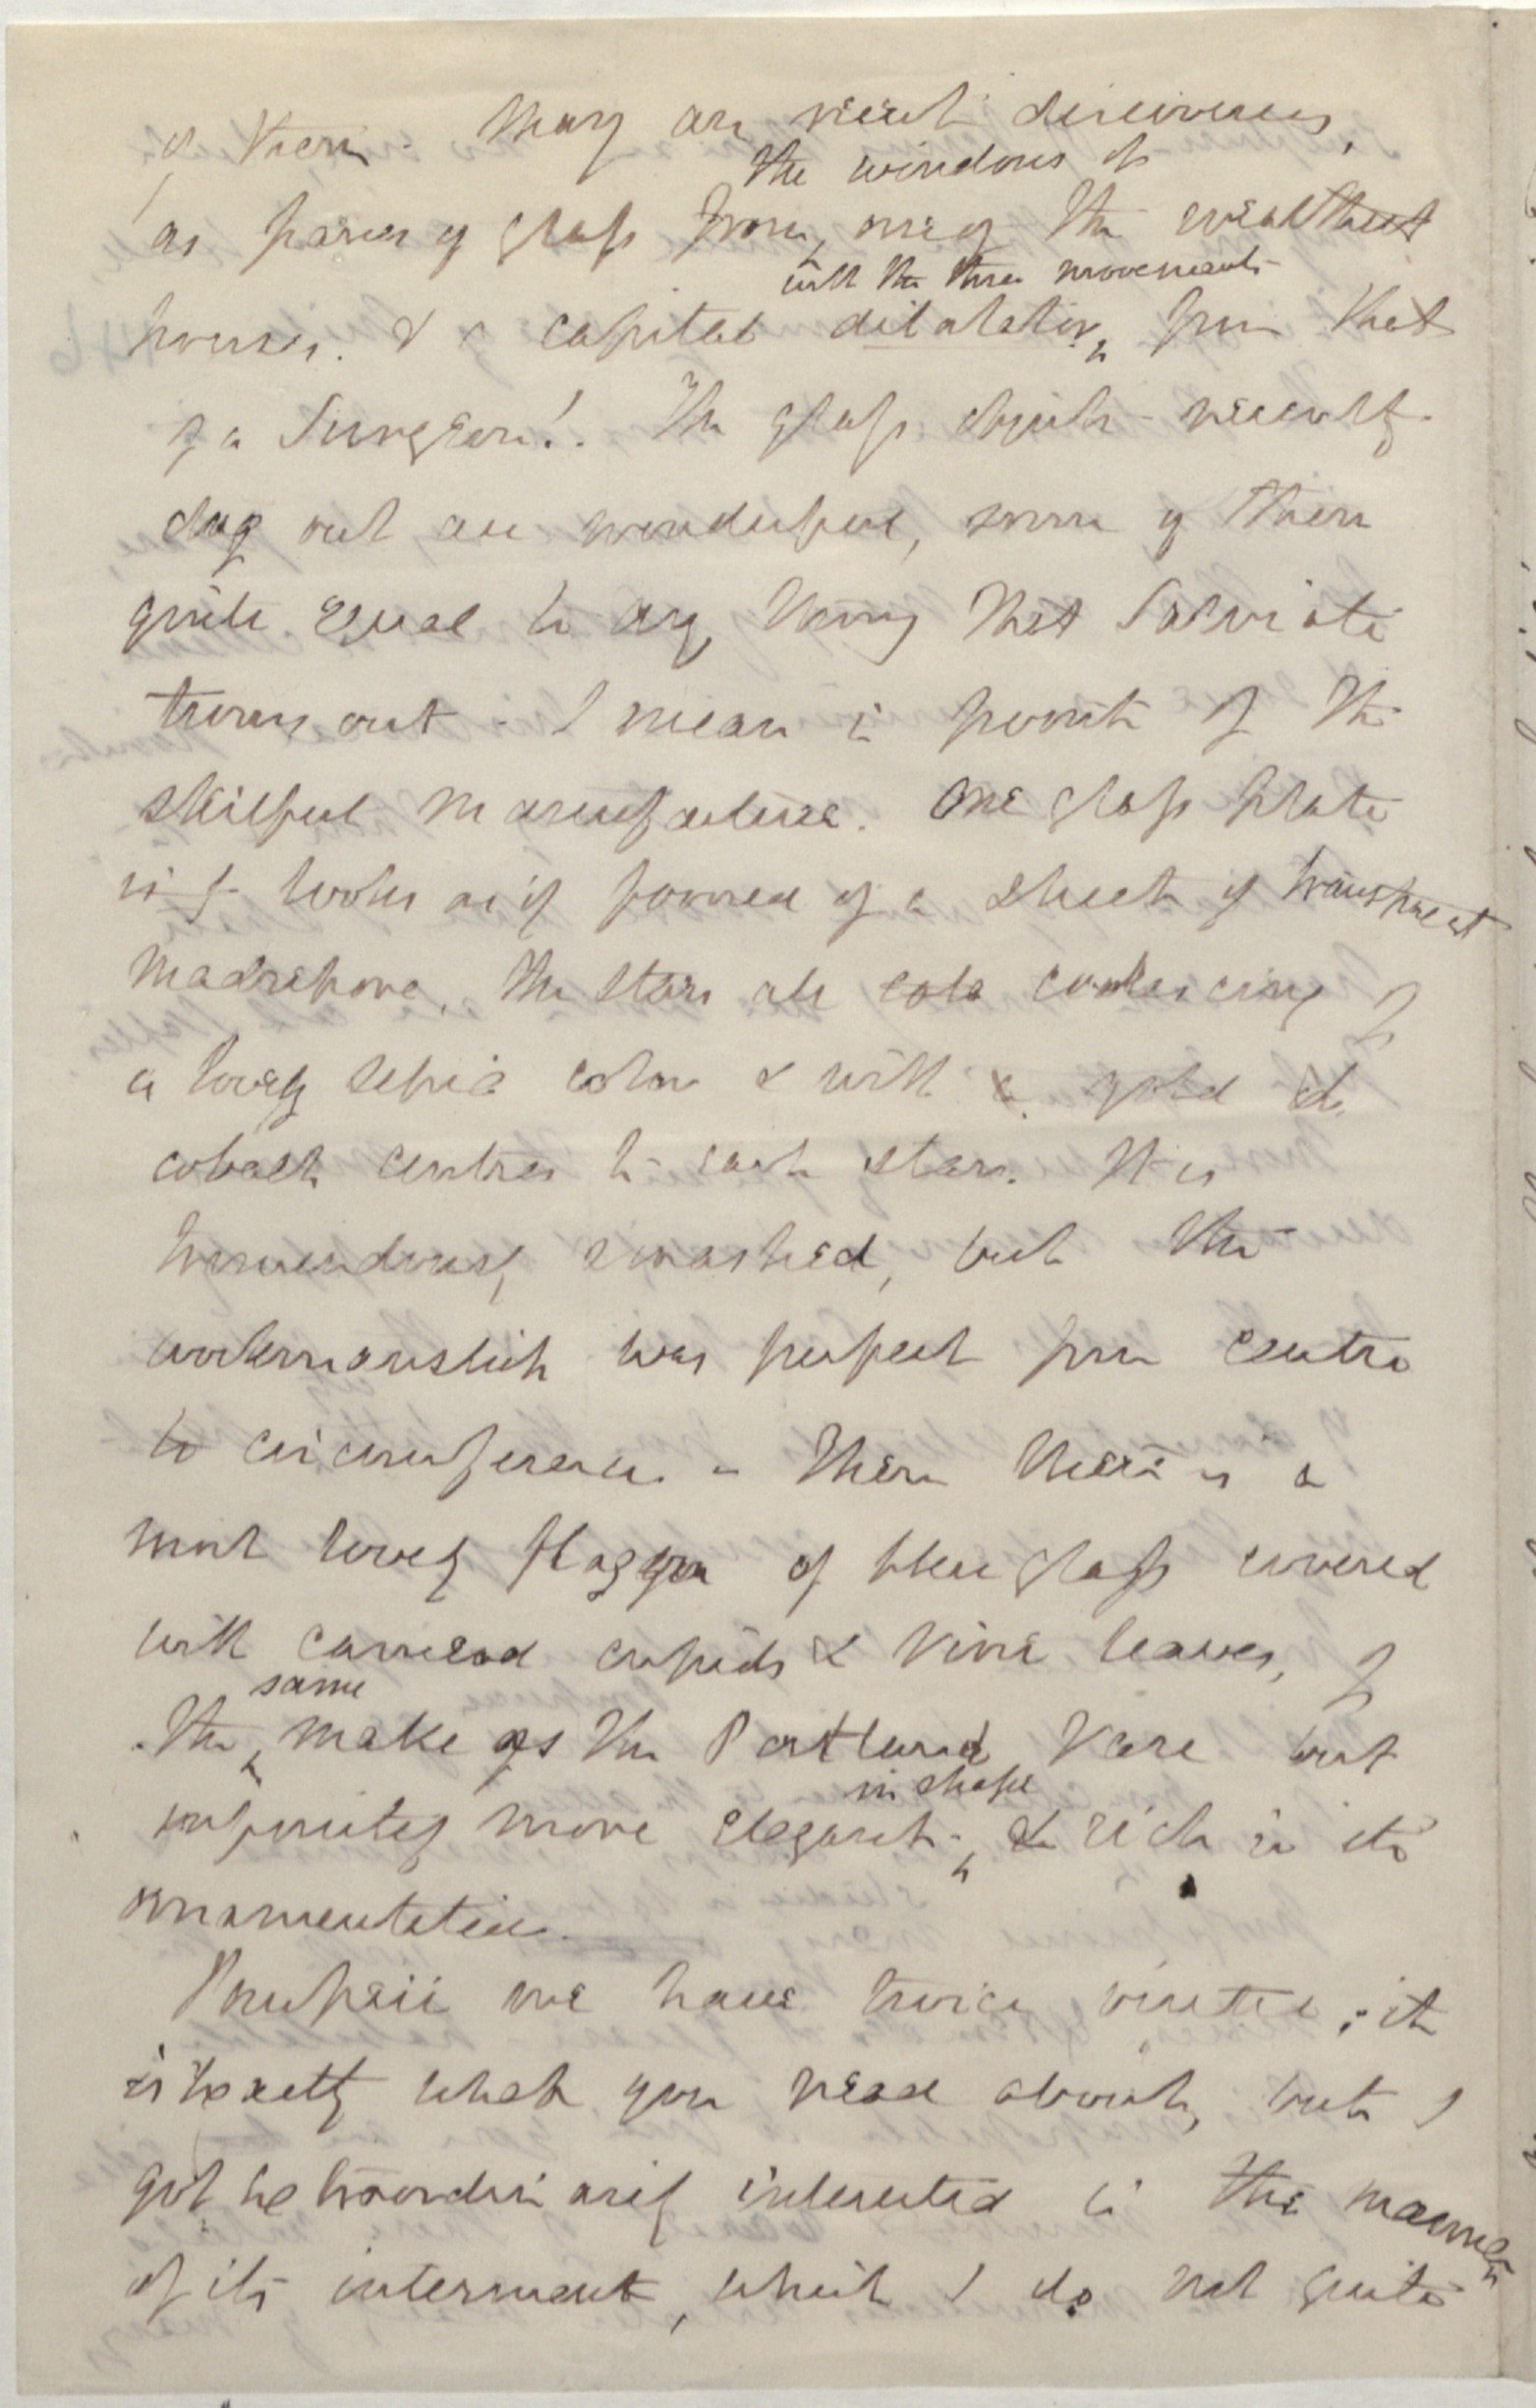 of them. Many are recent discoveries,
the windows of
as panes of glass from one of the wealthiest
with the three movements
houses. & a capital dilatator from that
of a Surgeon!. The glass objects recently
dug out are wonderful, some of them
quite equal to any thing that Salviati
turns out. I mean in point of the
skilful manufacture. One glass plate
looks as if formed of a sheet of transparent
Madrepore, the stars all coalescing of
a lovely sepia color & with gold &
cobalt centres to each star. It is
tremendously smashed, but the
workmanship was perfect from centre
to circumference. Then there is a
most lovely flaggon of blue glass covered
with cameod cupids & vine leaves, of
same
the make as the Portland Vase but
in shape
infinitely more elegant & rich in its
ornamentation.
Pompeii we have twice visited; it
is exactly what you read about, but I
got extraordinarily interested in the manner
of its interment, which I do not quite